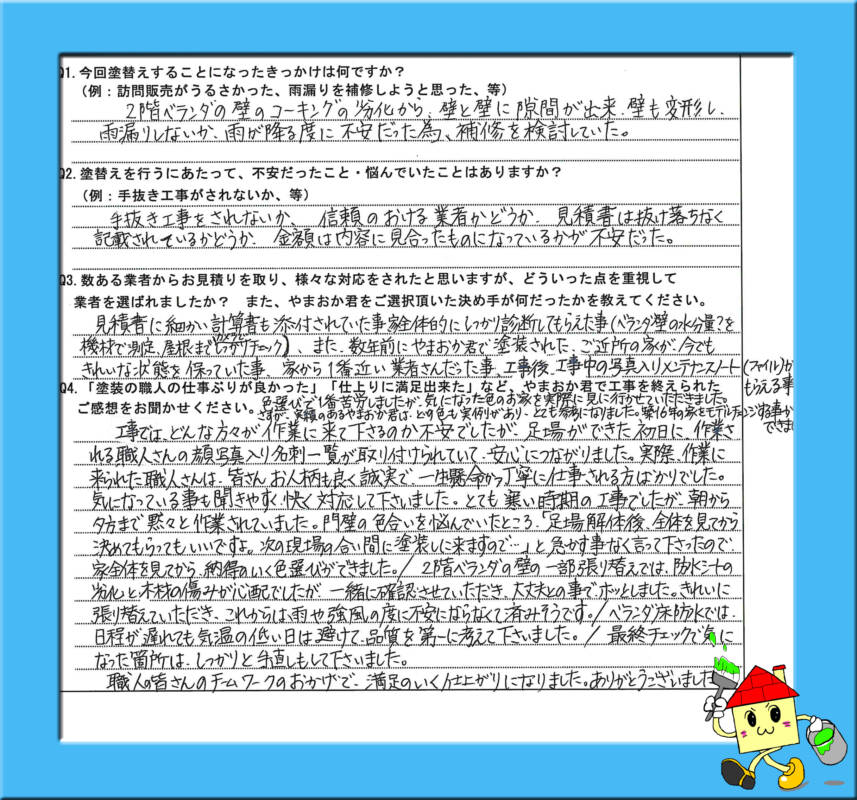 Q1. 今回塗替えすることになったきっかけは何ですか?
(例:訪問販売がうるさかった、雨漏りを補修しようと思った、等)
2階ベランダの壁のコーキングの劣化から、壁と壁に隙間が出来、壁も変形し、
雨漏りしないか、雨が降る度に不安だった為、補修を検討していた。
Q2. 塗替えを行うにあたって、不安だったこと・悩んでいたことはありますか?
(例:手抜き工事がされないか、等)
手抜き工事をされないか、信頼のおける業者かどうか、見積書は抜け落ちなく
記載されているかどうか、金額は内容に見合ったものになっているかが不安だった。
Q3. 数ある業者からお見積りを取り、様々な対応をされたと思いますが、どういった点を重視して
業者を選ばれましたか? また、やまおか君をご選択頂いた決め手が何だったかを教えてください。
見積書に細かい計算書も添付されていた事、家全体的にしっかり診断してもらえた事(ベランダ壁の水分量?を
機材で測定、屋根までカメラでしっかりチェック)、また、数年前にやまおか君で塗装された、ご近所の家が、今でも
きれいな状態を保っていた事、家から1番近い業者さんだった事、工事後、工事中の写真入りメンテナンスノート(ファイル)が
もらえる事
Q4. 「塗装の職人の仕事ぶりが良かった」「仕上りに満足出来た」など、やまおか君で工事を終えられた
ご感想をお聞かせください。
色選びで1番苦労しましたが、気になった色のお家を実際に見に行かせていただきました。
さすが、実績のあるやまおか君は、どの色も実例があり、とても参考になりました。築16年の家をモデルチェンジする事が
できました
工事では、どんな方々が作業に来て下さるのか不安でしたが、足場ができた初日に、作業さ
れる職人さんの顔写真入り名刺一覧が取り付けられていて、安心につながりました。実際、作業に
来られた職人さんは、皆さんお人柄も良く誠実で、一生懸命かつ丁寧に仕事される方ばかりでした。
気になっている事も聞きやすく、快く対応して下さいました。とても寒い時期の工事でしたが、朝から
夕方まで黙々と作業されていました。門壁の色合いを悩んでいたところ、「足場解体後、全体を見てから
決めてもらってもいいですよ。次の現場の合い間に塗装しに来ますので…」と急かす事なく言って下さったので
家全体を見てから、納得のいく色選びができました。/2階ベランダの壁の一部張り替えでは、防水シートの
劣化と木材の傷みが心配でしたが、一緒に確認させていただき、大丈夫との事でホッとしました。きれいに
張り替えていただき、これからは、雨や強風の度に不安にならなくて済みそうです。/ベランダ床防水では、
日程が遅れても気温の低い日は避けて、品質を第一に考えて下さいました。/ 最終チェックで気に
なった箇所は、しっかりと手直しもして下さいました。
職人の皆さんのチームワークのおかげで、満足のいく仕上がりになりました。ありがとうございました